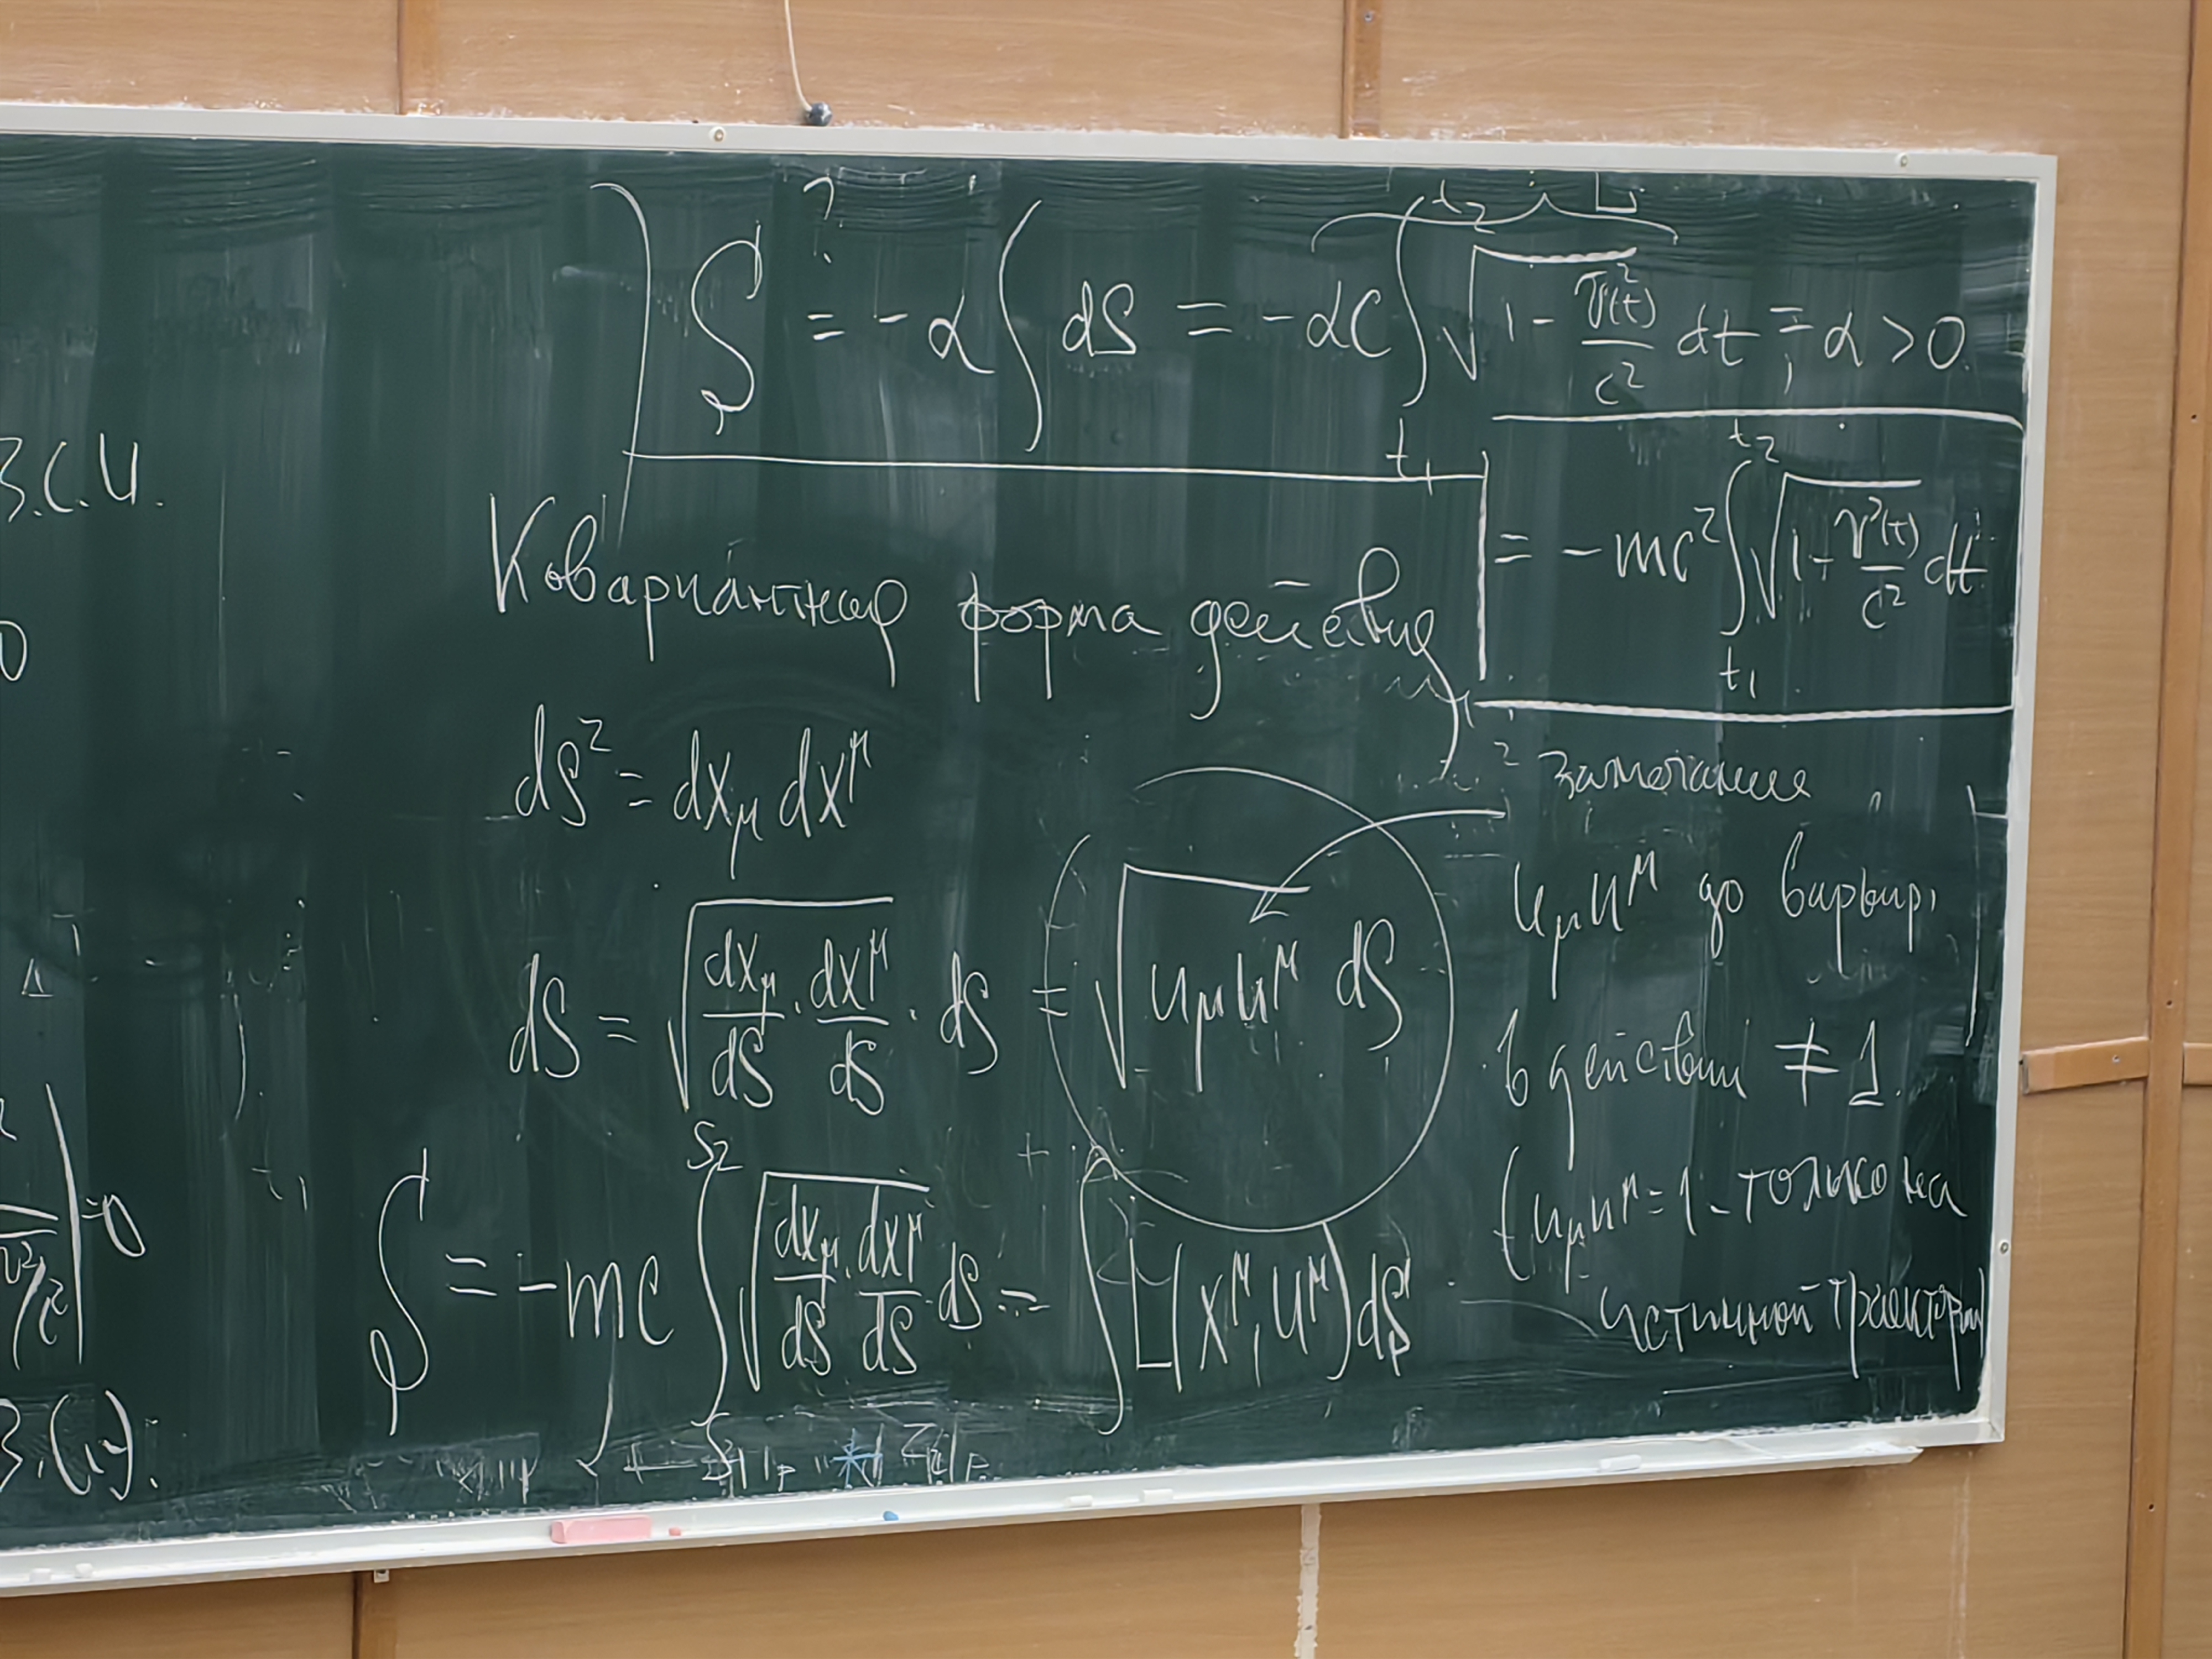 S ?= -α ∫ dS = -αc ∫_{t₁}^{t₂} √(1 - v²(t)/c²) dt = , α > 0.
L
= -mc² ∫_{t₁}^{t₂} √(1 - v²(t)/c²) dt
З.С.И.
Ковариантная форма действия
dS² = dx_μ dx^μ
dS = √(dx_μ/dS · dx^μ/dS) · dS = √(u_μ u^μ) dS
S = -mc ∫_{S₁}^{S₂} √(dx_μ/dS · dx^μ/dS) dS = ∫ L(x^μ, u^μ) dS
Замечание
u_μ u^μ до варьир.
в действии ≠ 1.
(u_μ u^μ = 1 - только на
истинной траектории)
0
= 0